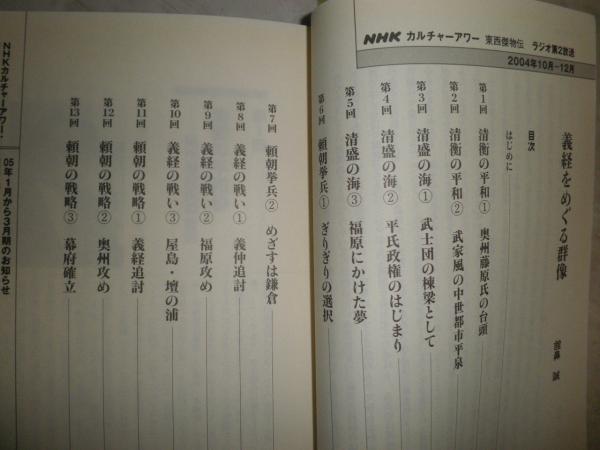 NHK カルチャーアワー 東西傑物伝 ラジオ第2放送
2004年10月―12月
義経をめぐる群像
舘鼻 誠
目次
はじめに
第1回 清衡の平和① 奥州藤原氏の台頭
第2回 清衡の平和② 武家風の中世都市平泉
第3回 清盛の海① 武士団の棟梁として
第4回 清盛の海② 平氏政権のはじまり
第5回 清盛の海③ 福原にかけた夢
第6回 頼朝挙兵① ぎりぎりの選択
第7回 頼朝挙兵② めざすは鎌倉
第8回 義経の戦い① 義仲追討
第9回 義経の戦い② 福原攻め
第10回 義経の戦い③ 屋島・壇の浦
第11回 頼朝の戦略① 義経追討
第12回 頼朝の戦略② 奥州攻め
第13回 頼朝の戦略③ 幕府確立
NHKカルチャーアワー・
05年1月から3月期のお知らせ